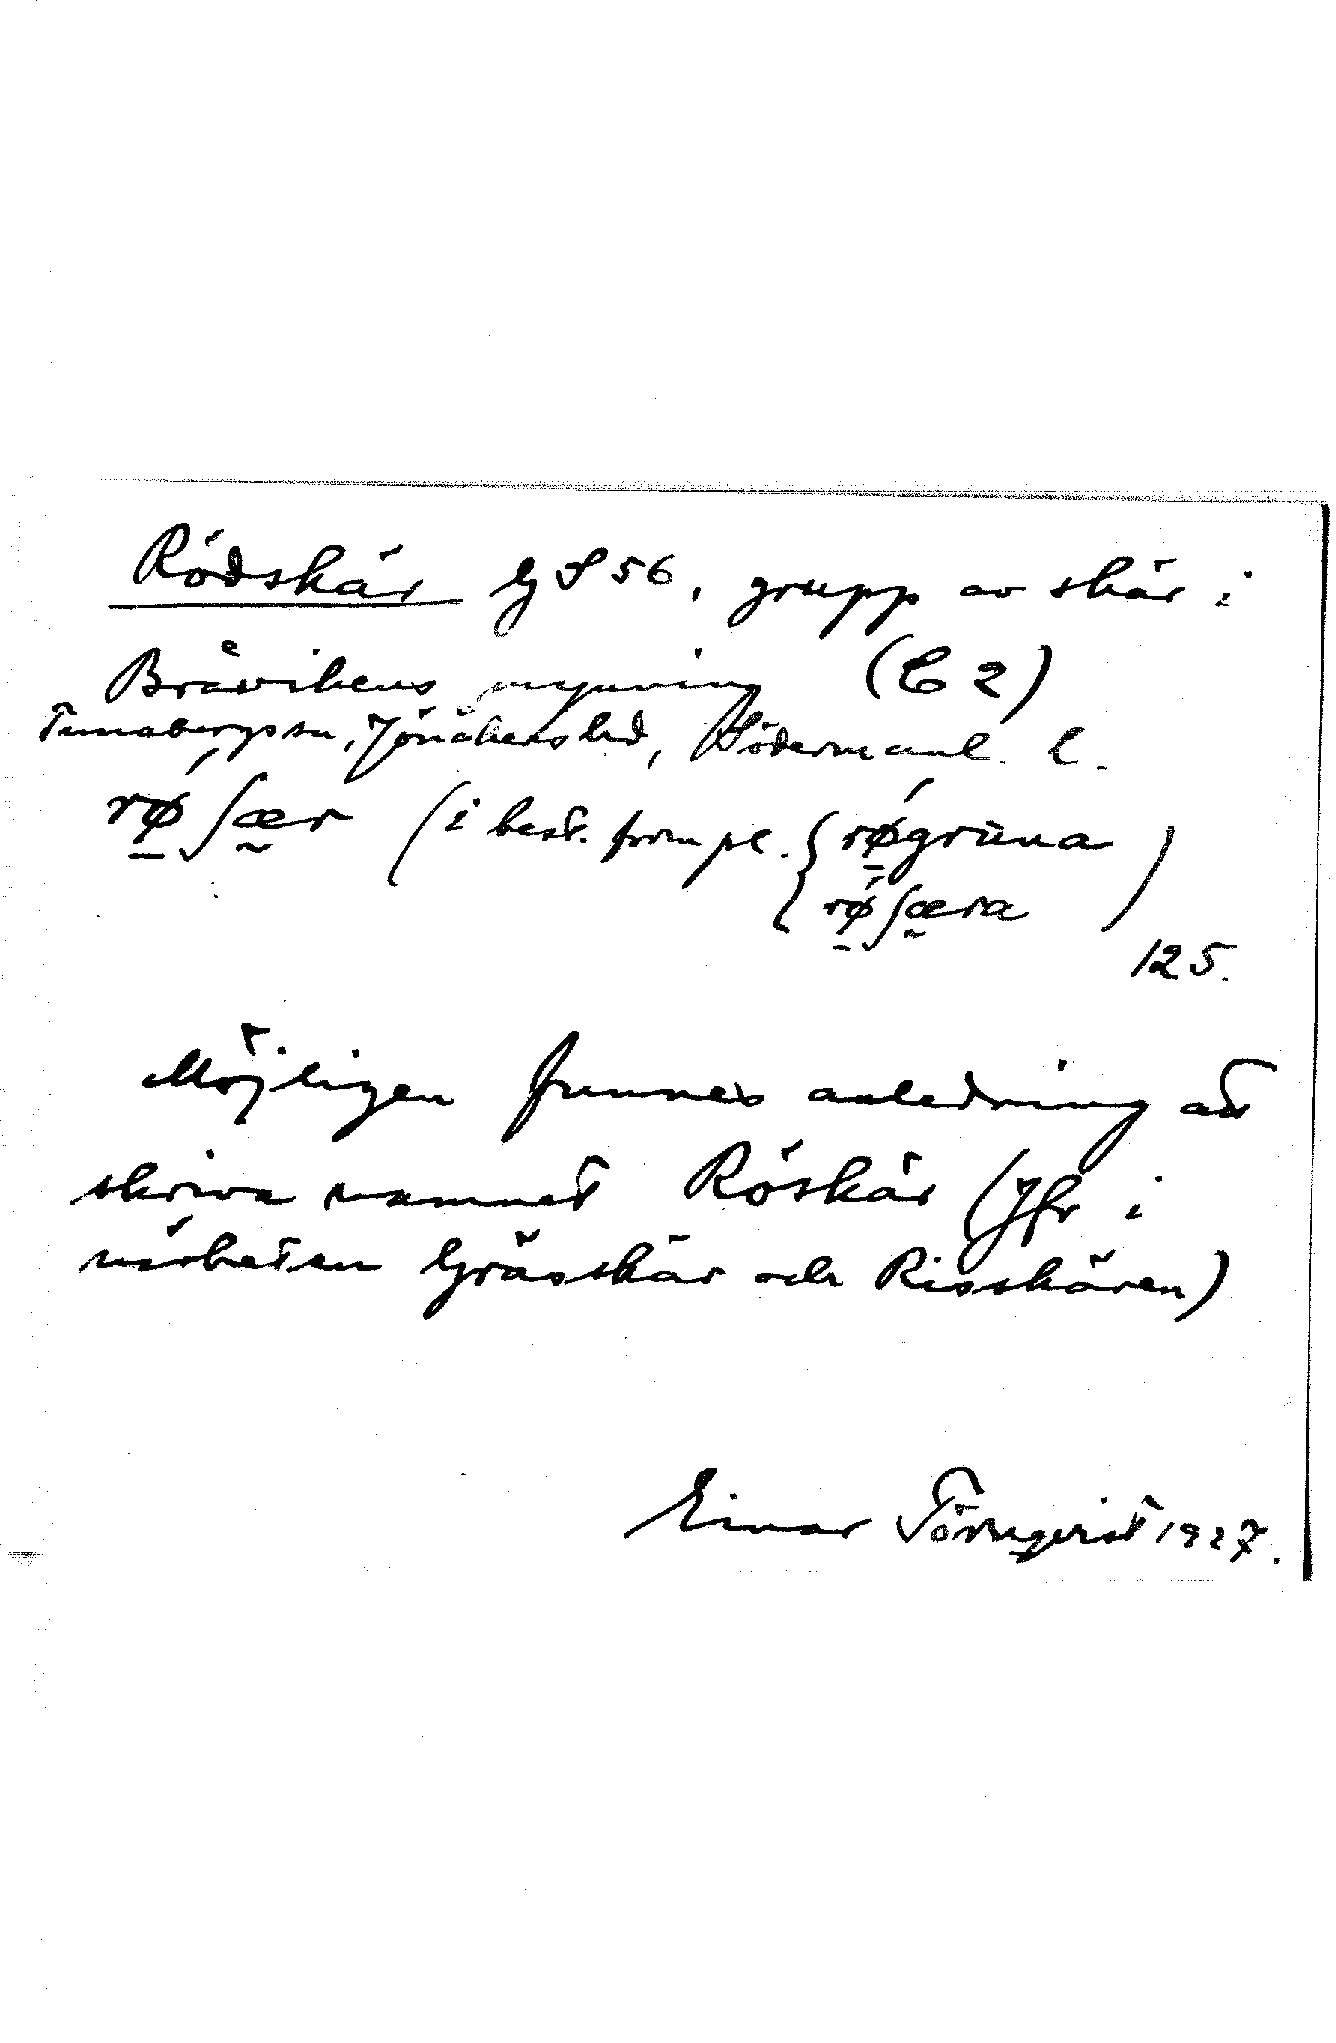 Rödskär G S 56, grupp av skär i
Bråvikens mynning (C 2)
Tunabergs sn, Jönåkers hd, Södermanl. l.
rǿ̱ʃæ̰r (i best. form pl. { rǿ̱grūna )
rǿ̱ʃæ̰ra
125.
Möjligen funnes anledning att
skriva namnet Röskär (Jfr i
närheten Grässkär och Risskären)
Einar Törnqvist 1927.